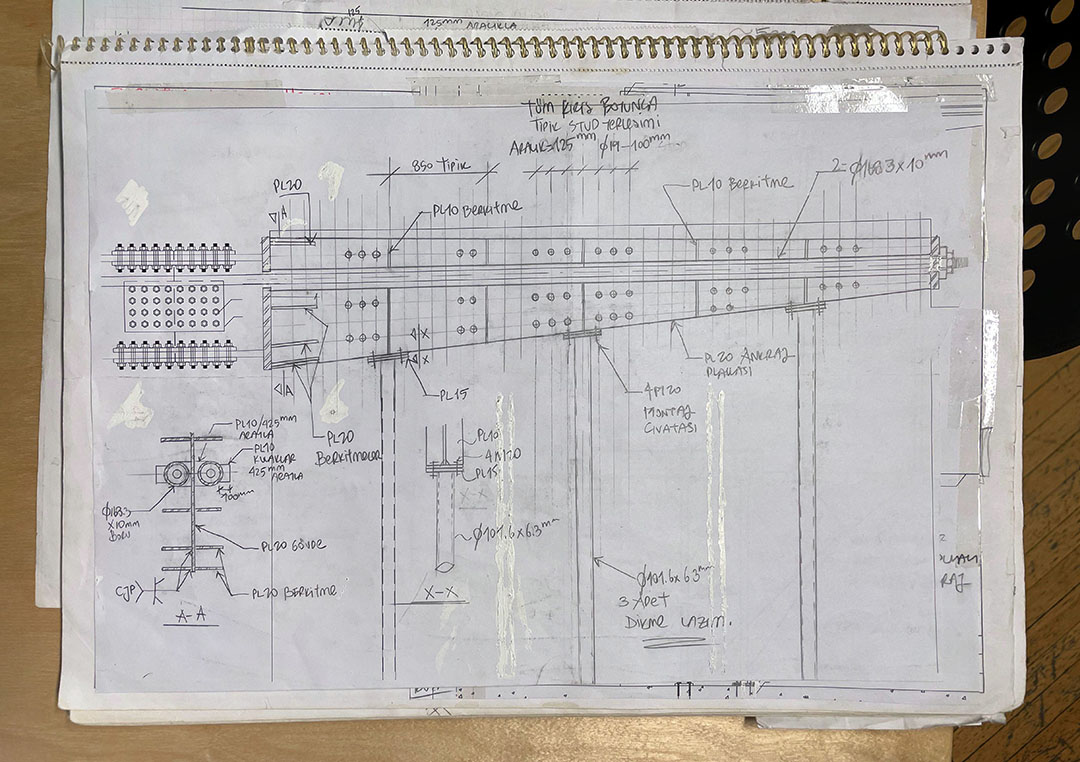 125
125mm ARALIKLA
TÜM KİRİŞ BOYUNCA
TİPİK STUD YERLEŞİMİ
ARALIK=125mm Ø19-100mm
850 TİPİK
PL20
A
PL10 BERKİTME
PL10 BERKİTME
2-Ø168.3x10mm
X
X
A
PL15
PL20
BERKİTMELER
PL20 ANKRAJ
PLAKASI
4M20
MONTAJ
CIVATASI
PL10/425mm
ARAYLA
PL10
KULAKLAR
425mm
ARAYLA
100mm
Ø168.3
x10mm
BORU
PL20 GÖVDE
CJP
PL20 BERKİTME
A-A
PL10
4M20
PL15
X-X
Ø101.6x6.3mm
X-X
Ø101.6x6.3mm
3 ADET
DİKME LAZIM.
2
RAJ